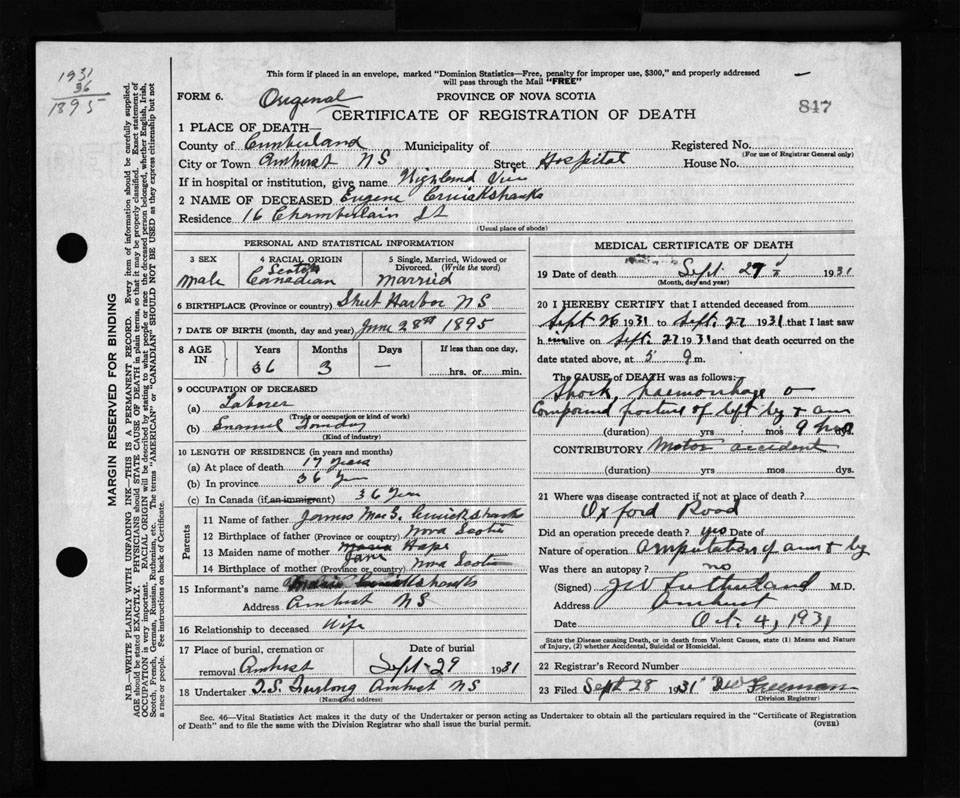 1931
36
1895
This form if placed in an envelope, marked "Dominion Statistics—Free, penalty for improper use, $300," and properly addressed
will pass through the Mail "FREE"
FORM 6. Original PROVINCE OF NOVA SCOTIA
847
CERTIFICATE OF REGISTRATION OF DEATH
1 PLACE OF DEATH—
County of Cumberland Municipality of Registered No.
(For use of Registrar General only)
City or Town Amherst NS Street Hospital House No.
If in hospital or institution, give name Highland View
2 NAME OF DECEASED Eugene Cruickshanks
Residence 16 Chamberlain St
(Usual place of abode)
PERSONAL AND STATISTICAL INFORMATION
3 SEX 4 RACIAL ORIGIN 5 Single, Married, Widowed or
Divorced. (Write the word)
Scotch
Male Canadian Married
6 BIRTHPLACE (Province or country) Sheet Harbor NS
7 DATE OF BIRTH (month, day and year) June 28th 1895
8 AGE IN Years Months Days If less than one day,
36 3 — hrs. or min.
9 OCCUPATION OF DECEASED
(a) Laborer
(Trade or occupation or kind of work)
(b) Enamel Foundry
(Kind of industry)
10 LENGTH OF RESIDENCE (in years and months)
(a) At place of death 17 years
(b) In province 36 Years
(c) In Canada (if an immigrant) 36 Years
Parents
11 Name of father James Cruickshanks
12 Birthplace of father (Province or country) Nova Scotia
13 Maiden name of mother Jane Hape
14 Birthplace of mother (Province or country) Nova Scotia
15 Informant's name Cruickshanks
Address Amherst NS
16 Relationship to deceased Wife
17 Place of burial, cremation or Date of burial
removal Amherst Sept-29 1931
18 Undertaker Furlong Amherst NS
(Name and address)
MEDICAL CERTIFICATE OF DEATH
19 Date of death Sept 27 1931
(Month, day and year)
20 I HEREBY CERTIFY that I attended deceased from
Sept 26 1931 to Sept. 27 1931 that I last saw
him alive on Sept. 27 1931 and that death occurred on the
date stated above, at 5 m.
The CAUSE of DEATH was as follows:
Shock, haemorrhage
Compound fracture of left leg + arm
(duration) yrs mos 9 hrs
CONTRIBUTORY Motor accident
(duration) yrs. mos. dys.
21 Where was disease contracted if not at place of death?
Oxford Road
Did an operation precede death? yes Date of
Nature of operation Amputation of arm + leg
Was there an autopsy? no
(Signed) JW Sutherland M.D.
Address Amherst
Date Oct. 4, 1931
State the Disease causing Death, or in death from Violent Causes, state (1) Means and Nature
of Injury, (2) whether Accidental, Suicidal or Homicidal.
22 Registrar's Record Number
23 Filed Sept 28 1931 Freeman
(Division Registrar)
Sec. 46—Vital Statistics Act makes it the duty of the Undertaker or person acting as Undertaker to obtain all the particulars required in the "Certificate of Registration
of Death" and to file the same with the Division Registrar who shall issue the burial permit. (OVER)
MARGIN RESERVED FOR BINDING
N.B.—WRITE PLAINLY WITH UNFADING INK—THIS IS A PERMANENT RECORD. Every item of information should be carefully supplied.
AGE should be stated EXACTLY. PHYSICIANS should STATE CAUSE OF DEATH in plain terms, so that it may be properly classified. Exact statement of
OCCUPATION is very important. RACIAL ORIGIN will be described by stating to what people or race the deceased person belonged, whether English, Irish,
Scotch, French, German, Russian, Ruthenian, etc. The terms "AMERICAN" or "CANADIAN" SHOULD NOT BE USED as they express citizenship but not
a race or people. Fee instructions on back of Certificate.